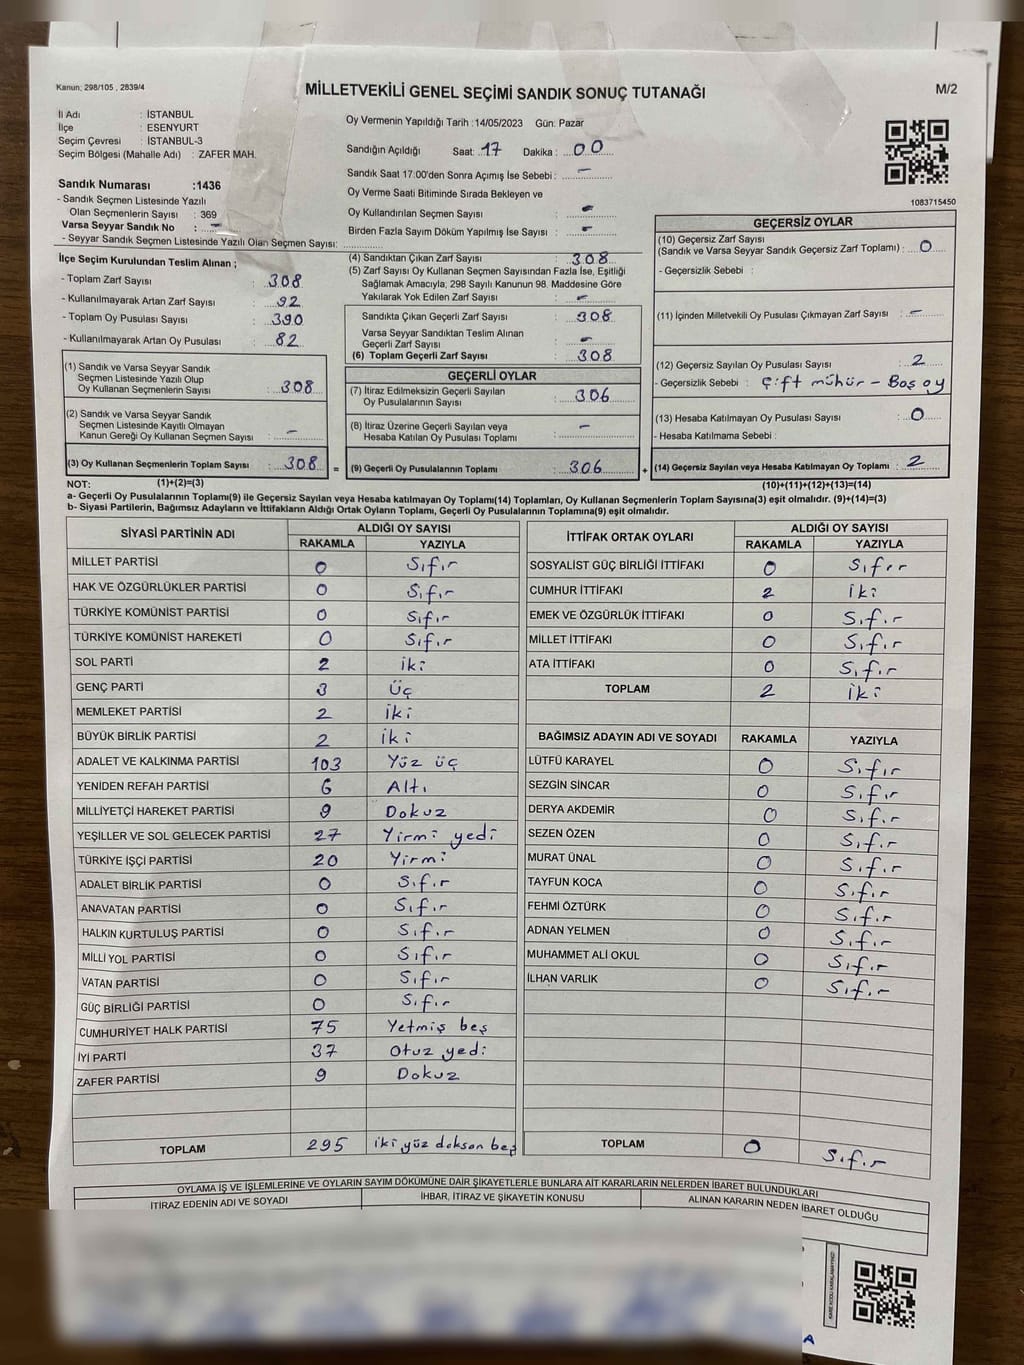 Kanun; 298/105 , 2839/4
MİLLETVEKİLİ GENEL SEÇİMİ SANDIK SONUÇ TUTANAĞI
M/2
İl Adı : İSTANBUL
İlçe : ESENYURT
Seçim Çevresi : İSTANBUL-3
Seçim Bölgesi (Mahalle Adı) : ZAFER MAH.
Oy Vermenin Yapıldığı Tarih :14/05/2023 Gün: Pazar
Sandığın Açıldığı Saat: 17 Dakika : 00
Sandık Saat 17:00'den Sonra Açımış İse Sebebi : -
Oy Verme Saati Bitiminde Sırada Bekleyen ve
Oy Kullandırılan Seçmen Sayısı : -
Birden Fazla Sayım Döküm Yapılmış İse Sayısı : -
1083715450
Sandık Numarası :1436
- Sandık Seçmen Listesinde Yazılı
Olan Seçmenlerin Sayısı : 369
Varsa Seyyar Sandık No : -
- Seyyar Sandık Seçmen Listesinde Yazılı Olan Seçmen Sayısı:
İlçe Seçim Kurulundan Teslim Alınan ;
- Toplam Zarf Sayısı : 308
- Kullanılmayarak Artan Zarf Sayısı : 92
- Toplam Oy Pusulası Sayısı : 390
- Kullanılmayarak Artan Oy Pusulası : 82
(1) Sandık ve Varsa Seyyar Sandık
Seçmen Listesinde Yazılı Olup
Oy Kullanan Seçmenlerin Sayısı : 308
(2) Sandık ve Varsa Seyyar Sandık
Seçmen Listesinde Kayıtlı Olmayan
Kanun Gereği Oy Kullanan Seçmen Sayısı : -
(3) Oy Kullanan Seçmenlerin Toplam Sayısı : 308 =
(4) Sandıktan Çıkan Zarf Sayısı : 308
(5) Zarf Sayısı Oy Kullanan Seçmen Sayısından Fazla İse, Eşitliği
Sağlamak Amacıyla, 298 Sayılı Kanunun 98. Maddesine Göre
Yakılarak Yok Edilen Zarf Sayısı : -
Sandıkta Çıkan Geçerli Zarf Sayısı : 308
Varsa Seyyar Sandıktan Teslim Alınan
Geçerli Zarf Sayısı : -
(6) Toplam Geçerli Zarf Sayısı : 308
GEÇERLİ OYLAR
(7) İtiraz Edilmeksizin Geçerli Sayılan
Oy Pusulalarının Sayısı : 306
(8) İtiraz Üzerine Geçerli Sayılan veya
Hesaba Katılan Oy Pusulası Toplamı : -
(9) Geçerli Oy Pusulalarının Toplamı : 306 +
GEÇERSİZ OYLAR
(10) Geçersiz Zarf Sayısı
(Sandık ve Varsa Seyyar Sandık Geçersiz Zarf Toplamı) : 0
- Geçersizlik Sebebi :
(11) İçinden Milletvekili Oy Pusulası Çıkmayan Zarf Sayısı : -
(12) Geçersiz Sayılan Oy Pusulası Sayısı : 2
- Geçersizlik Sebebi : Çift mühür - Boş oy
(13) Hesaba Katılmayan Oy Pusulası Sayısı : 0
- Hesaba Katılmama Sebebi :
(14) Geçersiz Sayılan veya Hesaba Katılmayan Oy Toplamı : 2
NOT: (1)+(2)=(3) (10)+(11)+(12)+(13)=(14)
a- Geçerli Oy Pusulalarının Toplamı(9) ile Geçersiz Sayılan veya Hesaba katılmayan Oy Toplamı(14) Toplamları, Oy Kullanan Seçmenlerin Toplam Sayısına(3) eşit olmalıdır. (9)+(14)=(3)
b- Siyasi Partilerin, Bağımsız Adayların ve İttifakların Aldığı Ortak Oyların Toplamı, Geçerli Oy Pusulalarının Toplamına(9) eşit olmalıdır.
SİYASİ PARTİNİN ADI ALDIĞI OY SAYISI
RAKAMLA YAZIYLA
MİLLET PARTİSİ 0 Sıfır
HAK VE ÖZGÜRLÜKLER PARTİSİ 0 Sıfır
TÜRKİYE KOMÜNİST PARTİSİ 0 Sıfır
TÜRKİYE KOMÜNİST HAREKETİ 0 Sıfır
SOL PARTİ 2 İki
GENÇ PARTİ 3 Üç
MEMLEKET PARTİSİ 2 İki
BÜYÜK BİRLİK PARTİSİ 2 İki
ADALET VE KALKINMA PARTİSİ 103 Yüz üç
YENİDEN REFAH PARTİSİ 6 Altı
MİLLİYETÇİ HAREKET PARTİSİ 9 Dokuz
YEŞİLLER VE SOL GELECEK PARTİSİ 27 Yirmi yedi
TÜRKİYE İŞÇİ PARTİSİ 20 Yirmi
ADALET BİRLİK PARTİSİ 0 Sıfır
ANAVATAN PARTİSİ 0 Sıfır
HALKIN KURTULUŞ PARTİSİ 0 Sıfır
MİLLİ YOL PARTİSİ 0 Sıfır
VATAN PARTİSİ 0 Sıfır
GÜÇ BİRLİĞİ PARTİSİ 0 Sıfır
CUMHURİYET HALK PARTİSİ 75 Yetmiş beş
İYİ PARTİ 37 Otuz yedi
ZAFER PARTİSİ 9 Dokuz
TOPLAM 295 iki yüz doksan beş
İTTİFAK ORTAK OYLARI ALDIĞI OY SAYISI
RAKAMLA YAZIYLA
SOSYALİST GÜÇ BİRLİĞİ İTTİFAKI 0 Sıfır
CUMHUR İTTİFAKI 2 İki
EMEK VE ÖZGÜRLÜK İTTİFAKI 0 Sıfır
MİLLET İTTİFAKI 0 Sıfır
ATA İTTİFAKI 0 Sıfır
TOPLAM 2 İki
BAĞIMSIZ ADAYIN ADI VE SOYADI RAKAMLA YAZIYLA
LÜTFÜ KARAYEL 0 Sıfır
SEZGİN SİNCAR 0 Sıfır
DERYA AKDEMİR 0 Sıfır
SEZEN ÖZEN 0 Sıfır
MURAT ÜNAL 0 Sıfır
TAYFUN KOCA 0 Sıfır
FEHMİ ÖZTÜRK 0 Sıfır
ADNAN YELMEN 0 Sıfır
MUHAMMET ALİ OKUL 0 Sıfır
İLHAN VARLIK 0 Sıfır
TOPLAM 0 Sıfır
OYLAMA İŞ VE İŞLEMLERİNE VE OYLARIN SAYIM DÖKÜMÜNE DAİR ŞİKAYETLERLE BUNLARA AİT KARARLARIN NELERDEN İBARET BULUNDUKLARI
İTİRAZ EDENİN ADI VE SOYADI İHBAR, İTİRAZ VE ŞİKAYETİN KONUSU ALINAN KARARIN NEDEN İBARET OLDUĞU